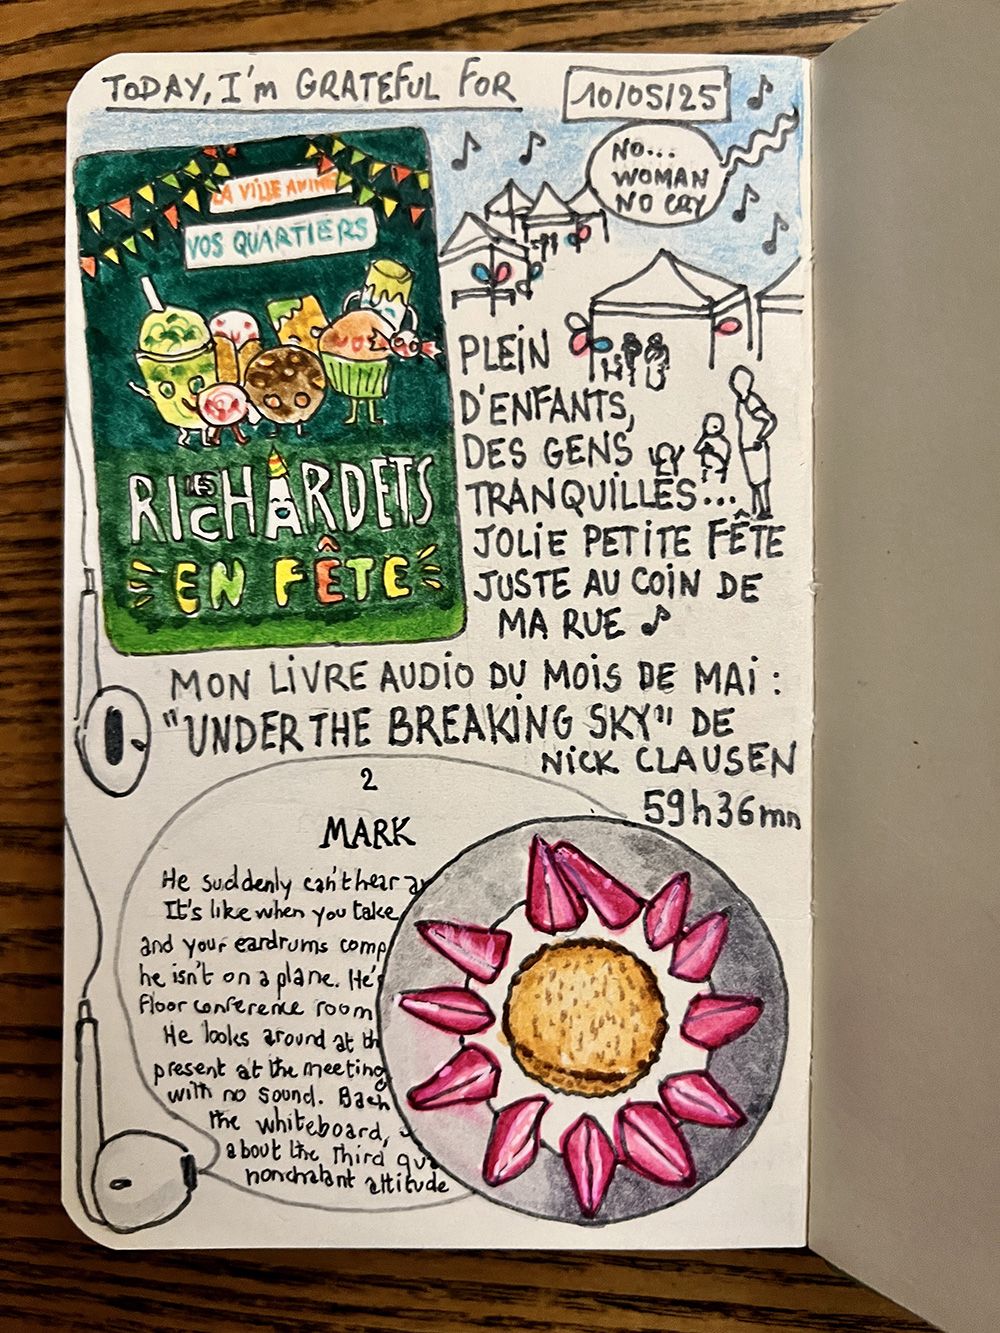 TODAY, I'M GRATEFUL FOR
10/05/25
NO...
WOMAN
NO CRY
LA VILLE ANIME
VOS QUARTIERS
LES
RICHARDETS
EN FÊTE
PLEIN
D'ENFANTS,
DES GENS
TRANQUILLES...
JOLIE PETITE FÊTE
JUSTE AU COIN DE
MA RUE
MON LIVRE AUDIO DU MOIS DE MAI :
"UNDER THE BREAKING SKY" DE
NICK CLAUSEN
59h36mn
2
MARK
He suddenly can't hear
It's like when you take
and your eardrums comp
he isn't on a plane. He's
floor conference room
He looks around at th
present at the meeting
with no sound. Bach
the whiteboard,
about the third qu
nonchalant attitude